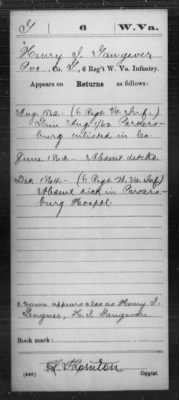 G 6 W.Va.
Henry I. Gangever
Pvt., Co. G, 6 Reg't W. Va. Infantry.
Appears on Returns as follows:
Aug 186 - (6 Regt Va. Inf.)
Aug 1/62 Parkers-
burg enlisted in Co
June 186 - Absent detchd.
Dec 186 - (6 Regt W. Va Inf)
Absent sick in Parkers-
burg Hospl.
Name appears also as Henry I.
Book mark:
(546) Copyist.